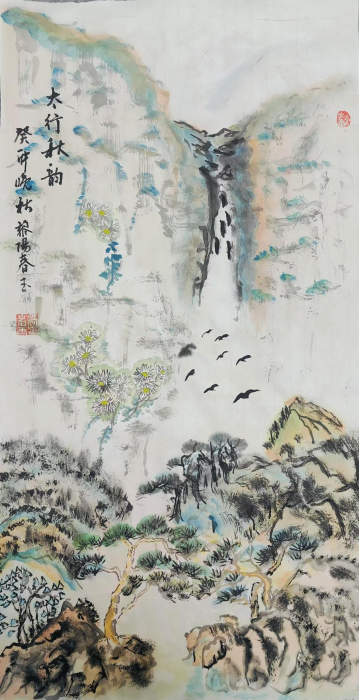 太行秋韵
癸卯晚秋黎阳春玉